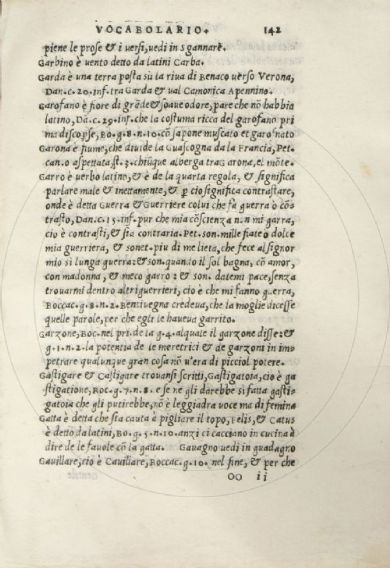 VOCABOLARIO. 142
piene le prose & i uersi, uedi in sgannare.
Garbino è uento detto da latini Carba.
Garda è una terra posta sù la riua di Benaco uerso Verona,
Dan. c. 20. inf. tra Garda & ual Camonica Apennino.
Garofano è fiore di grāde & soaue odore, pare che nō habbia
latino, Da. c. 29. inf. che la costuma ricca del garofano pri
ma discoperse, Bo. g. 8. n. 10. cō sapone muscato et garofnato
Garona è fiume, che diuide la Guascogna da la Francia, Pet.
can. o aspettata st. 3. chiūque alberga tra Garona, el mōte.
Garro è uerbo latino, & è de la quarta regola, & significa
parlare male & inettamente, & p cio significa contrastare,
onde è detta Guerra & Guerriere colui che fà guerra o cōs
trasto, Dan. c. 15. inf. pur che mia cōscienza n.n mi garra,
cio è contrasti, & sia contraria. Pet. son. mille fiate o dolce
mia guerriera, & sonet. piu di me lieta, che fece al signor
mio sì lunga guerra: & son. quando il sol bagna, cō amor,
con madonna, & meco garro: & son. datemi pace, senza
trouarmi dentro altri guerrieri, cio è che mi fanno guerra,
Boccac. g. 8. n. 2. Bentiuegna credeua, che la moglie dicesse
quelle parole, per che egli le haueua garrito.
Garzone, Boc. nel pri. de la g. 4. alquale il garzone disse: &
g. 1. n. 2. la potentia de le meretrici & de garzoni in im=
petrare qualunque gran cosa nō u'era di picciol potere.
Gastigare & Castigare trouansi scritti, Gastigatoia, cio è ga
stigatione, Boc. g. 7. n. 8. e se ne gli darebbe sì fatta gasti=
gatoia che gli putirebbe, nō è leggiadra uoce ma di femina
Gatta è detta che sta cauta è pigliare il topo, Felis, & Catus
è detto da latini, Bo. g. 5. n. 10. anzi ci cacciano in cucina à
dire de le fauole cō la gatta. Gauagno uedi in guadagno
Gauillare, cio è Cauillare, Boccac. g. 10. nel fine, & per che
OO ii